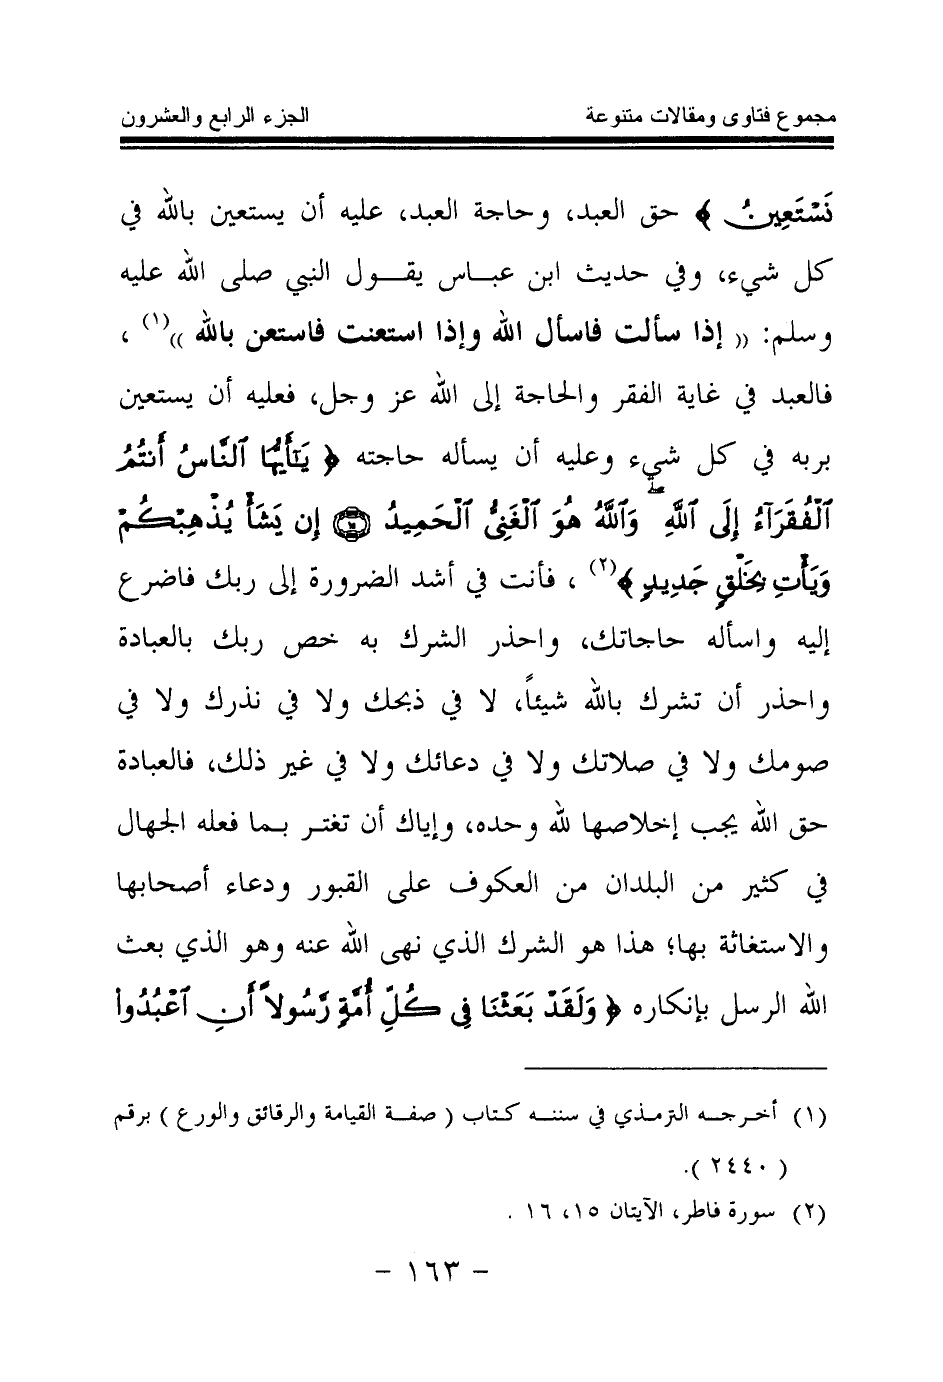 مجموع فتاوى ومقالات متنوعة الجزء الرابع والعشرون
نَسْتَعِينُ ﴾ حق العبد، وحاجة العبد، عليه أن يستعين بالله في
كل شيء، وفي حديث ابن عباس يقول النبي صلى الله عليه
وسلم: (( إذا سألت فاسأل الله وإذا استعنت فاستعن بالله ))(١) ،
فالعبد في غاية الفقر والحاجة إلى الله عز وجل، فعليه أن يستعين
بربه في كل شيء وعليه أن يسأله حاجته ﴿ يَٰٓأَيُّهَا ٱلنَّاسُ أَنتُمُ
ٱلْفُقَرَآءُ إِلَى ٱللَّهِ ۖ وَٱللَّهُ هُوَ ٱلْغَنِىُّ ٱلْحَمِيدُ ۝ إِن يَشَأْ يُذْهِبْكُمْ
وَيَأْتِ بِخَلْقٍ جَدِيدٍ ﴾(٢) ، فأنت في أشد الضرورة إلى ربك فاضرع
إليه واسأله حاجاتك، واحذر الشرك به خص ربك بالعبادة
واحذر أن تشرك بالله شيئاً، لا في ذبحك ولا في نذرك ولا في
صومك ولا في صلاتك ولا في دعائك ولا في غير ذلك، فالعبادة
حق الله يجب إخلاصها لله وحده، وإياك أن تغتر بما فعله الجهال
في كثير من البلدان من العكوف على القبور ودعاء أصحابها
والاستغاثة بها؛ هذا هو الشرك الذي نهى الله عنه وهو الذي بعث
الله الرسل بإنكاره ﴿ وَلَقَدْ بَعَثْنَا فِى كُلِّ أُمَّةٍ رَّسُولاً أَنِ ٱعْبُدُوا
(١) أخرجه الترمذي في سننه كتاب ( صفة القيامة والرقائق والورع ) برقم
( ٢٤٤٠ ).
(٢) سورة فاطر، الآيتان ١٥، ١٦ .
- ١٦٣ -